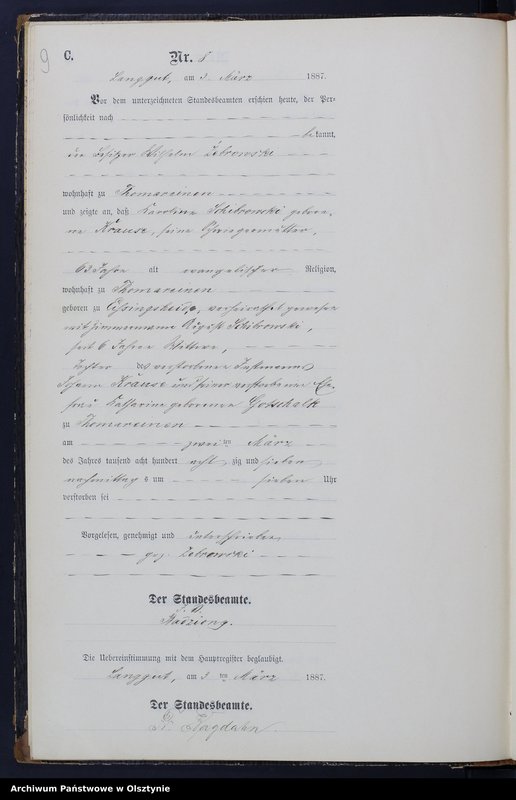 9
C.
Nr. 8
Langgut, am 3 März 1887.
Vor dem unterzeichneten Standesbeamten erschien heute, der Per-
sönlichkeit nach
bekannt,
der Besitzer Wilhelm Zebrowski
wohnhaft zu Thomareinen
und zeigte an, daß Karoline Schibrowski gebore-
ne Krause, seine Schwiegermutter,
63 Jahre alt evangelischer Religion,
wohnhaft zu Thomareinen
geboren zu verheirathet gewesen
mit Zimmermann August Schibrowski,
seit 6 Jahren Wittwe,
Tochter des verstorbenen Instmanns
Johann Krause und seiner verstorbenen Ehe-
frau Katharine geborenen Gotschalk
zu Thomareinen
am zweiten März
des Jahres tausend acht hundert achtzig und sieben
nachmittags um sieben Uhr
verstorben sei
Vorgelesen, genehmigt und unterschrieben
gez. Zebrowski
Der Standesbeamte.
Die Uebereinstimmung mit dem Hauptregister beglaubigt.
Langgut, am 3ten März 1887.
Der Standesbeamte.
Archiwum Państwowe w Olsztynie